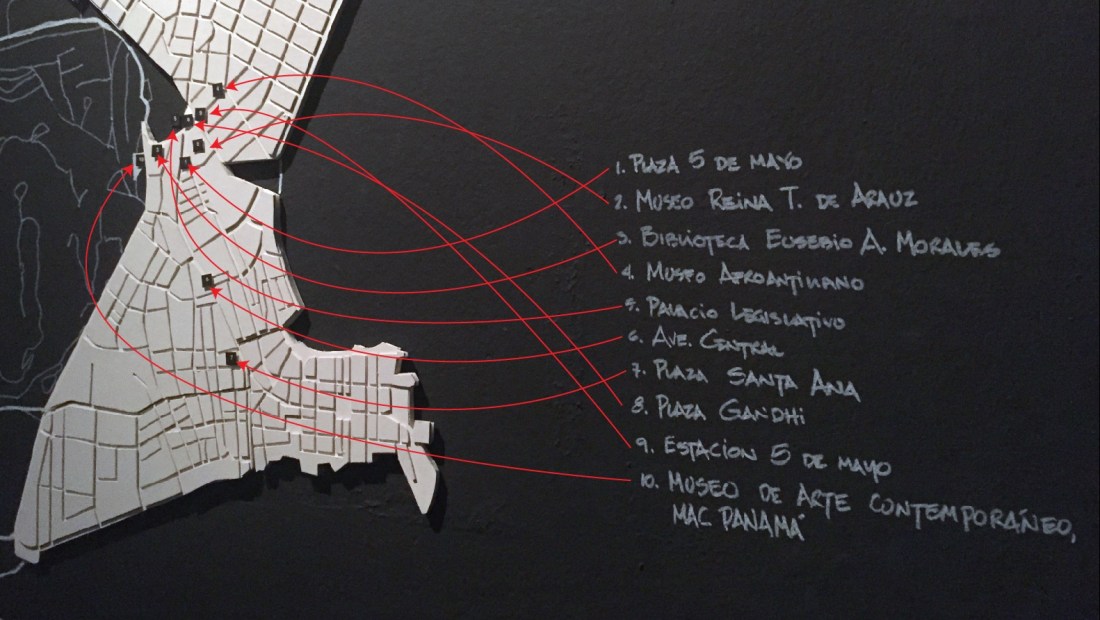 1. PLAZA 5 DE MAYO
2. MUSEO REINA T. DE ARAUZ
3. BIBLIOTECA EUSEBIO A. MORALES
4. MUSEO AFROANTILLANO
5. PALACIO LEGISLATIVO
6. AVE. CENTRAL
7. PLAZA SANTA ANA
8. PLAZA GANDHI
9. ESTACION 5 DE MAYO
10. MUSEO DE ARTE CONTEMPORÁNEO,
MAC PANAMÁ